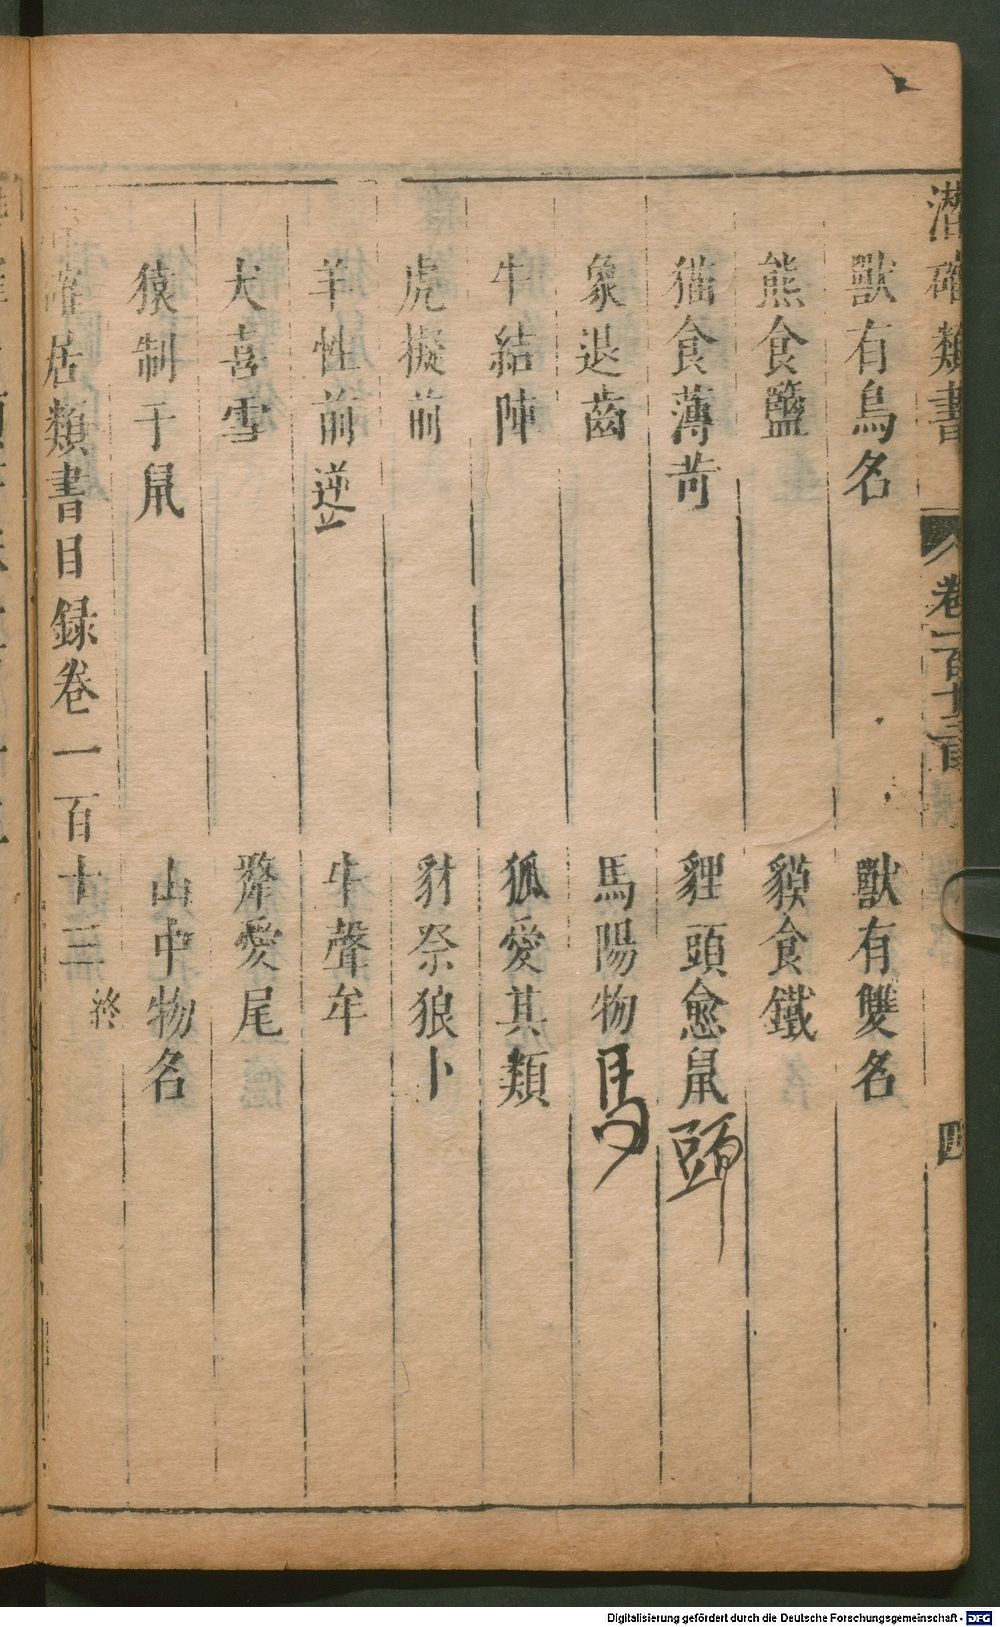 潛確類書 卷一百十三目 四
獸有鳥名 獸有雙名
熊食鹽 貘食鐵
猫食薄苛 貍頭愈鼠頭
象退齒 馬陽物馬
牛結陣 狐愛其類
虎擬前 豺祭狼卜
羊性前逆 牛聲牟
犬喜雪 犛愛尾
猿制于鼠 山中物名
確居類書目録卷一百十三 終
Digitalisierung gefördert durch die Deutsche Forschungsgemeinschaft - DFG